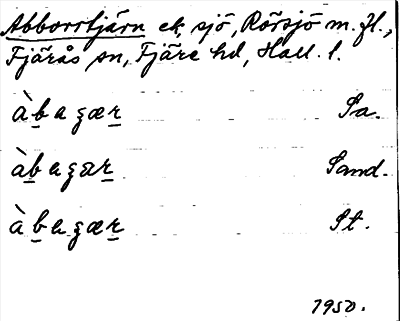 Abborrtjärn ek, sjö, Rörsjö m.fl.,
Fjärås sn, Fjäre hd, Hall. l.
àbagær Sa.
àbagær Sand.
àbagær St.
1950.